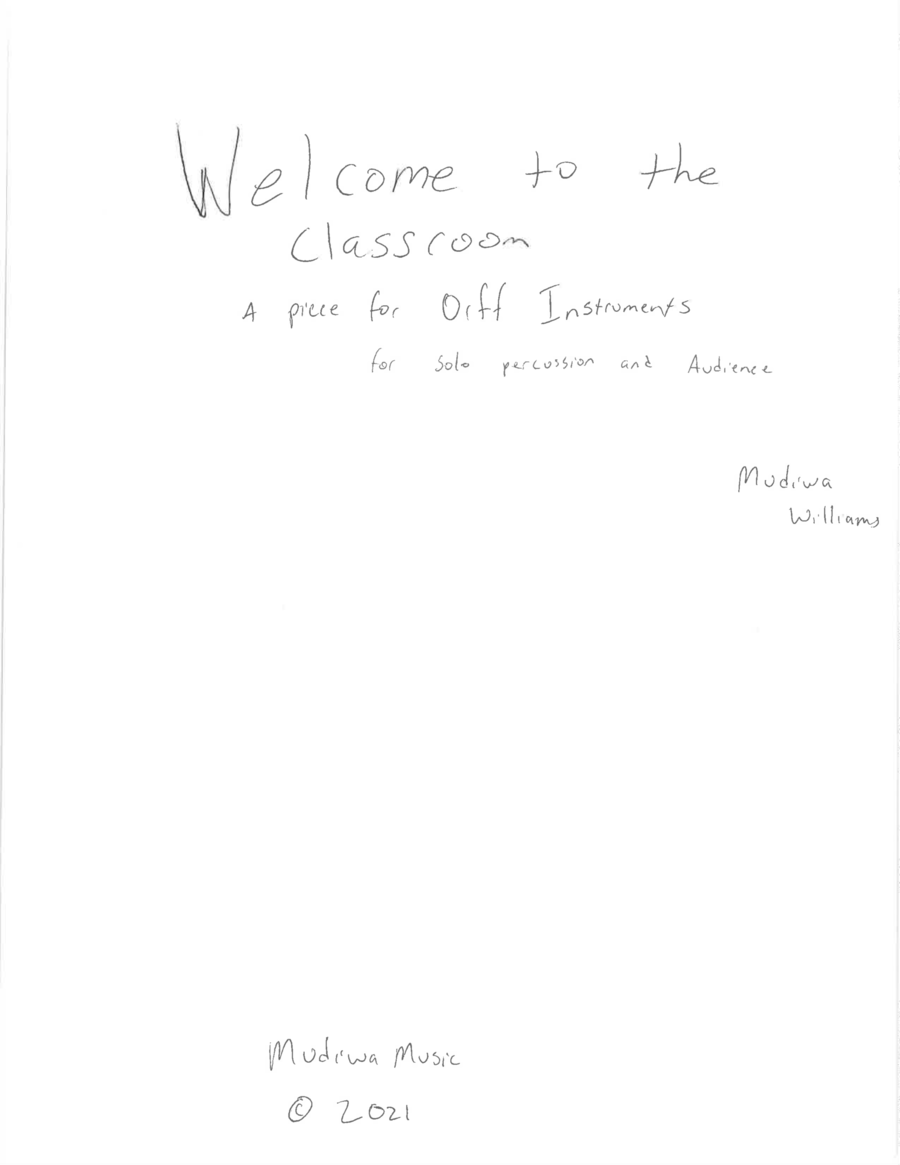 Welcome to the
Classroom
A piece for Orff Instruments
for solo percussion and Audience
Mudiwa
Williams
Mudiwa Music
© 2021